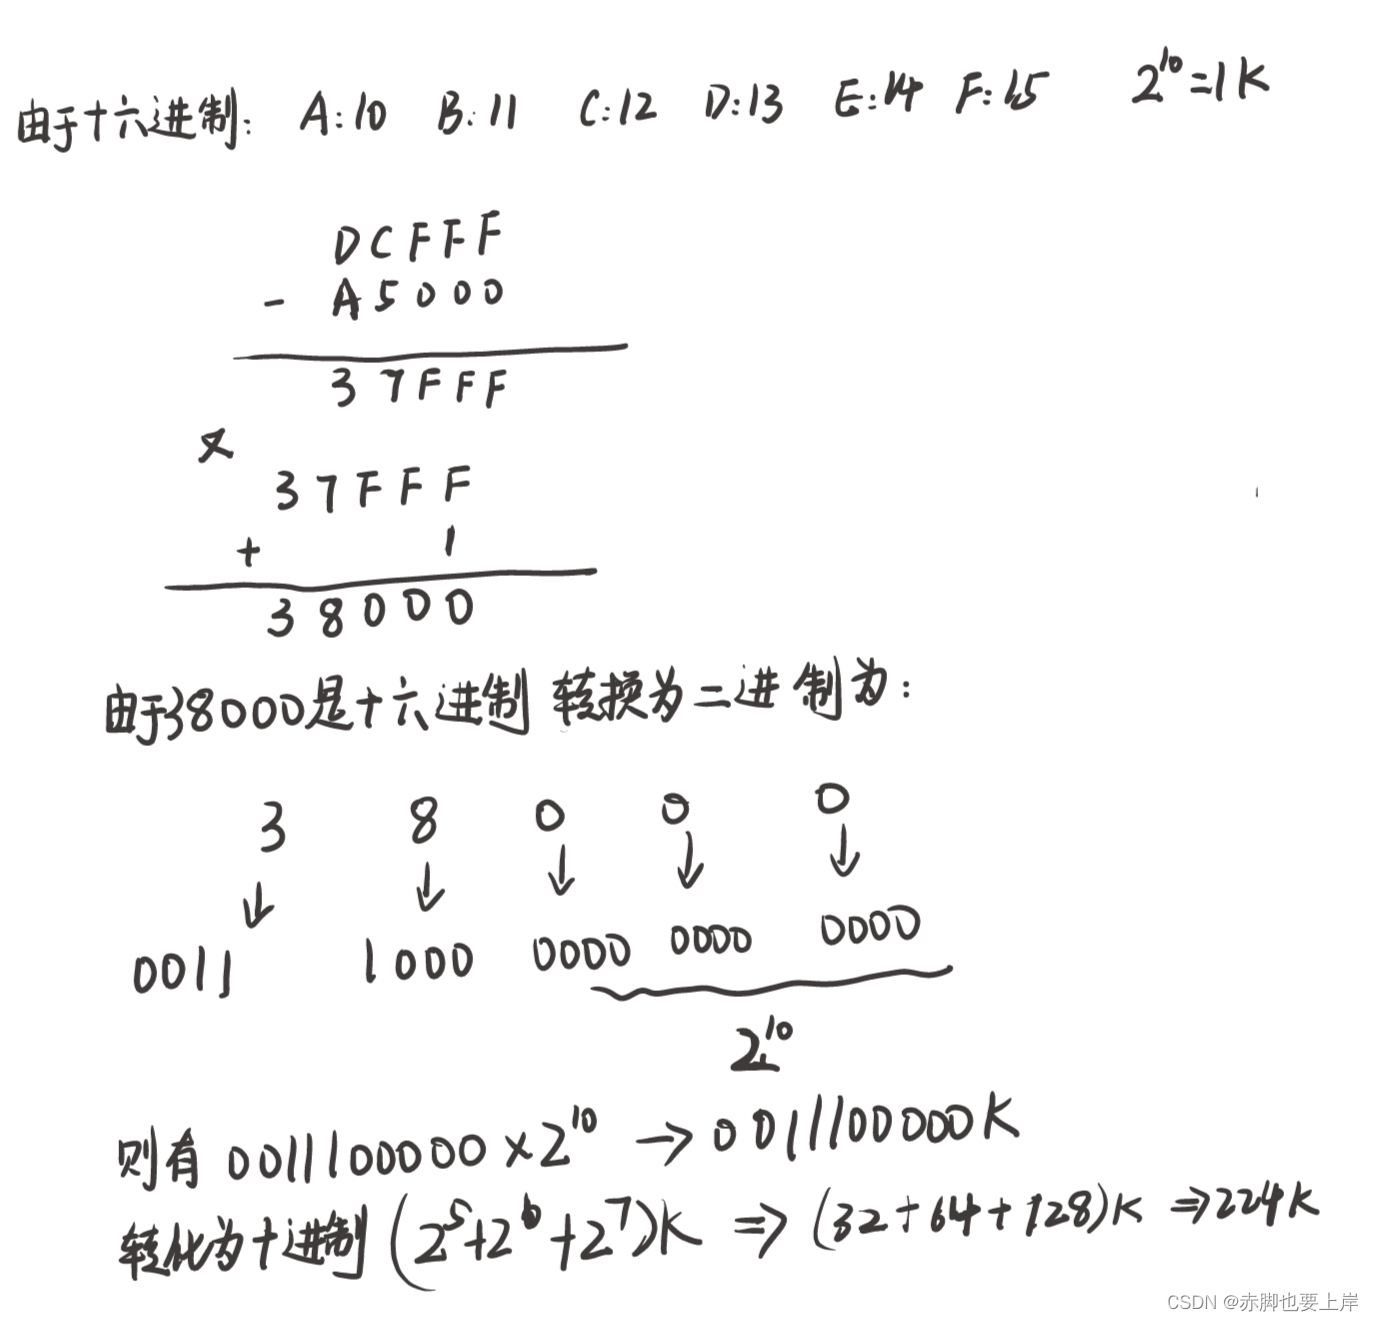 由于十六进制: A:10 B:11 C:12 D:13 E:14 F:15 2^10=1K
DCFFF
- A5000
37FFF
又
37FFF
+ 1
38000
由于38000是十六进制 转换为二进制为:
3 8 0 0 0
↓ ↓ ↓ ↓ ↓
0011 1000 0000 0000 0000
2^10
则有 0011100000×2^10 → 0011100000K
转化为十进制 (2^5+2^6+2^7)K ⇒ (32+64+128)K ⇒224K
CSDN @赤脚也要上岸